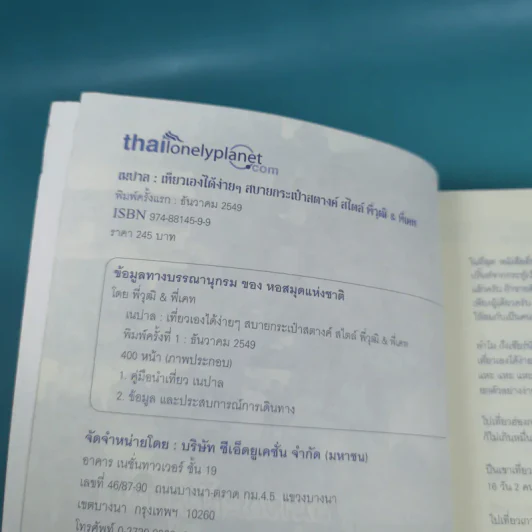 thailonelyplanet.com
เนปาล : เที่ยวเองได้ง่ายๆ สบายกระเป๋าสตางค์ สไตล์ พี่วุฒิ & พี่เคท
พิมพ์ครั้งแรก : ธันวาคม 2549
ISBN 974-88145-9-9
ราคา 245 บาท
ข้อมูลทางบรรณานุกรม ของ หอสมุดแห่งชาติ
โดย พี่วุฒิ & พี่เคท
เนปาล : เที่ยวเองได้ง่ายๆ สบายกระเป๋าสตางค์ สไตล์ พี่วุฒิ & พี่เคท
พิมพ์ครั้งที่ 1 : ธันวาคม 2549
400 หน้า (ภาพประกอบ)
1. คู่มือนำเที่ยว เนปาล
2. ข้อมูล และประสบการณ์การเดินทาง
จัดจำหน่ายโดย : บริษัท ซีเอ็ดยูเคชั่น จำกัด (มหาชน)
อาคาร เนชั่นทาวเวอร์ ชั้น 19
เลขที่ 46/87-90 ถนนบางนา-ตราด กม.4.5 แขวงบางนา
เขตบางนา กรุงเทพฯ 10260
โทรศัพท์